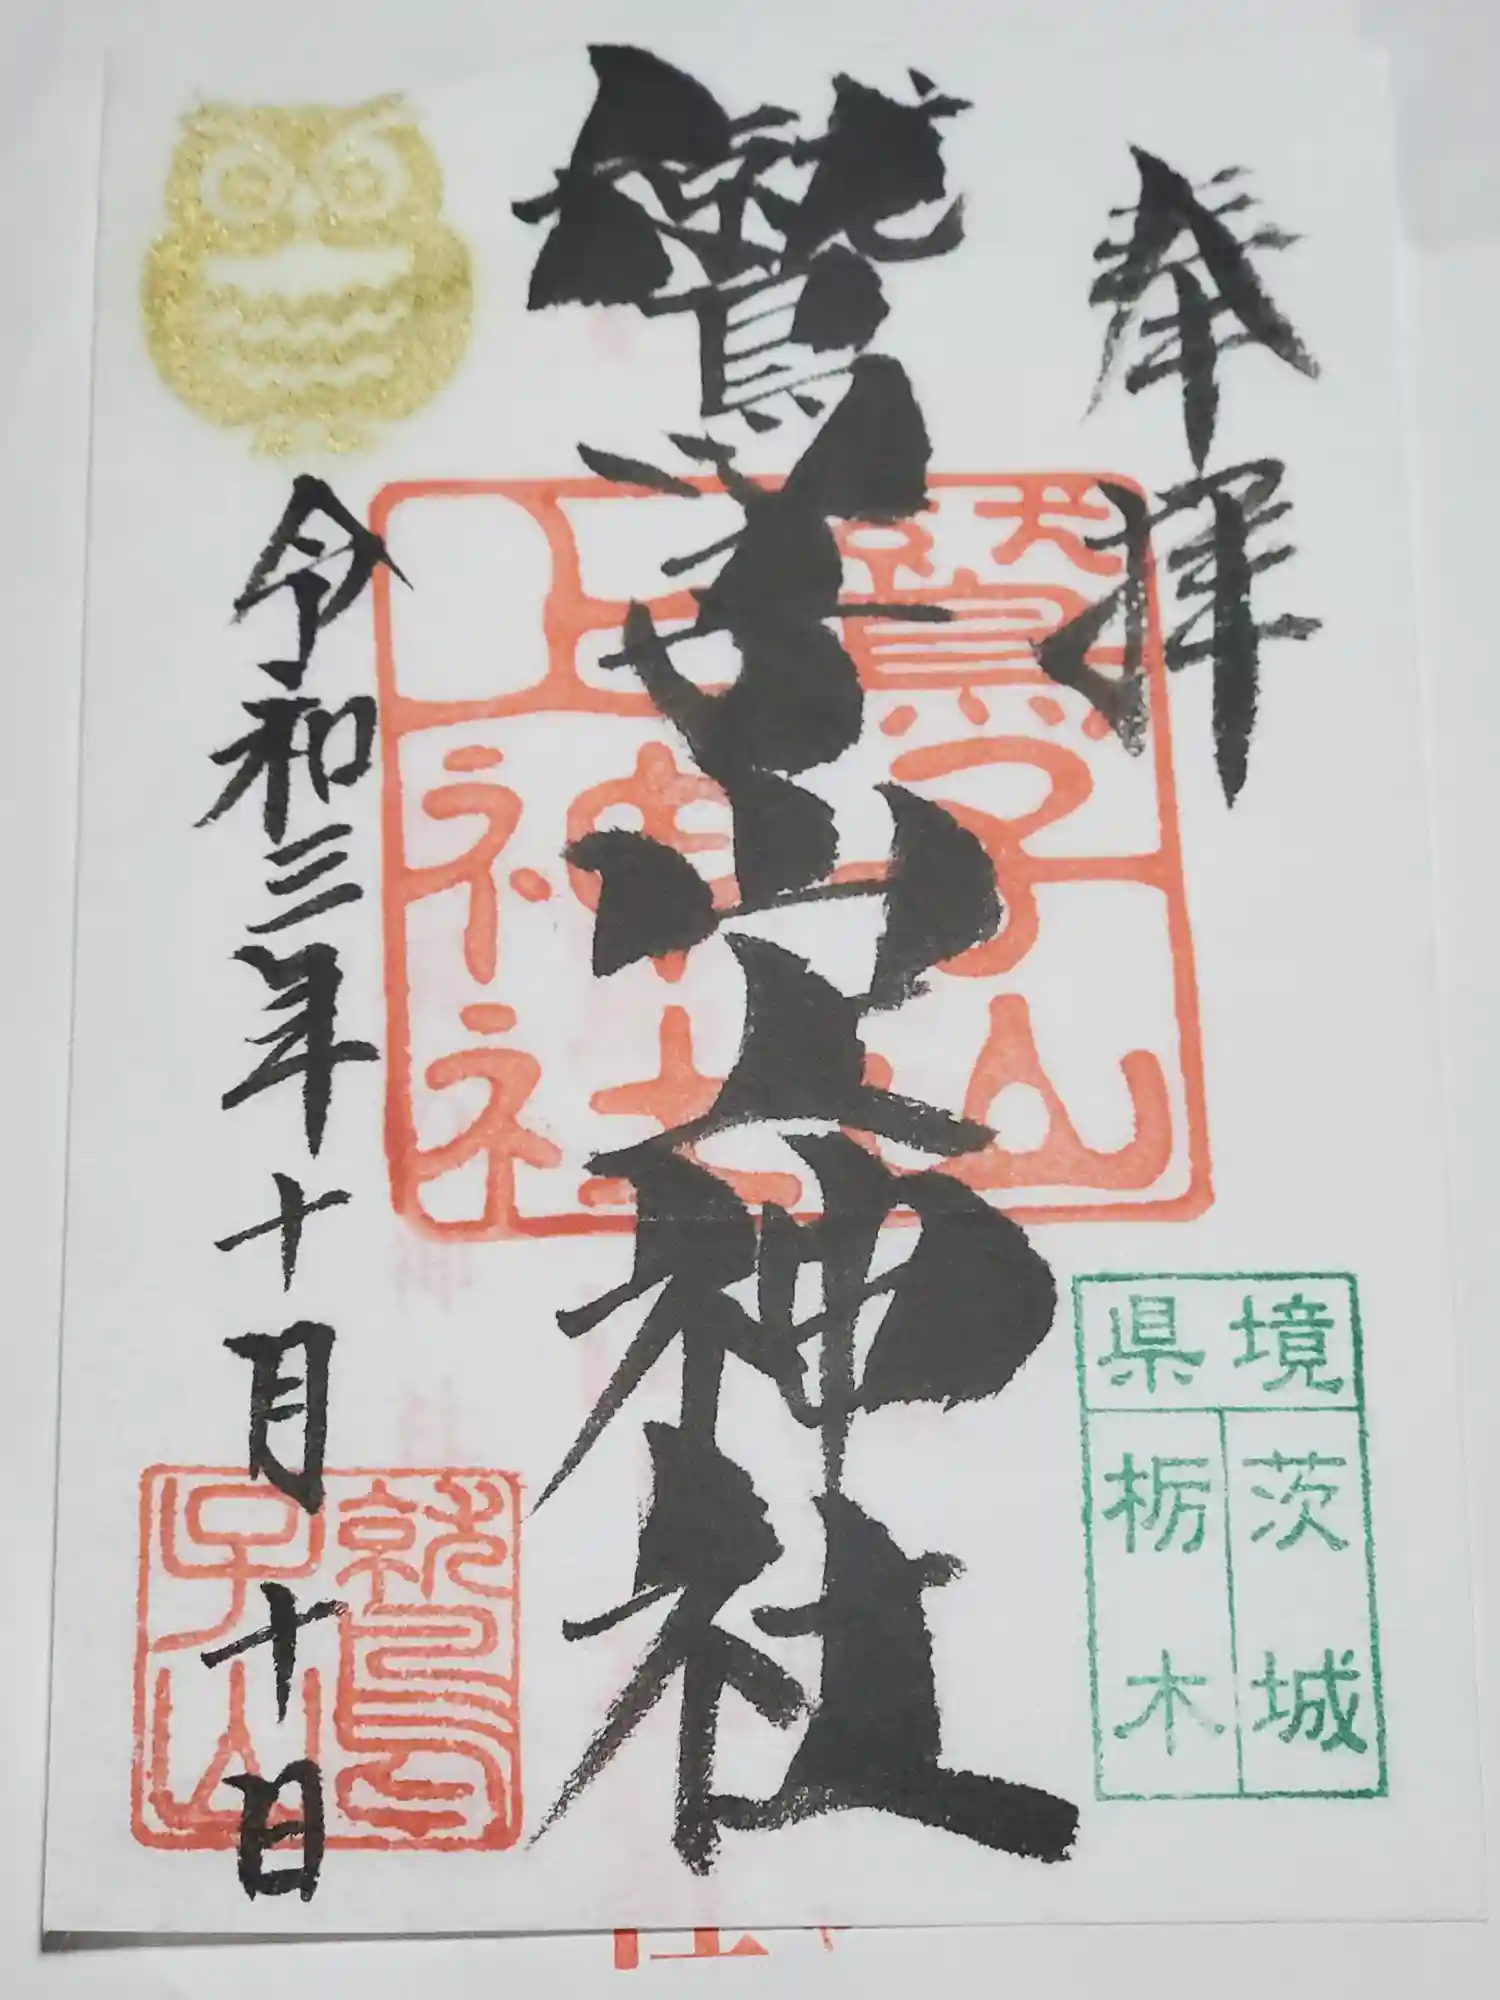 奉拝
鷲子山上神社
鷲子山
上神社
県境
茨城
栃木
令和三年十月十日
鷲
子山